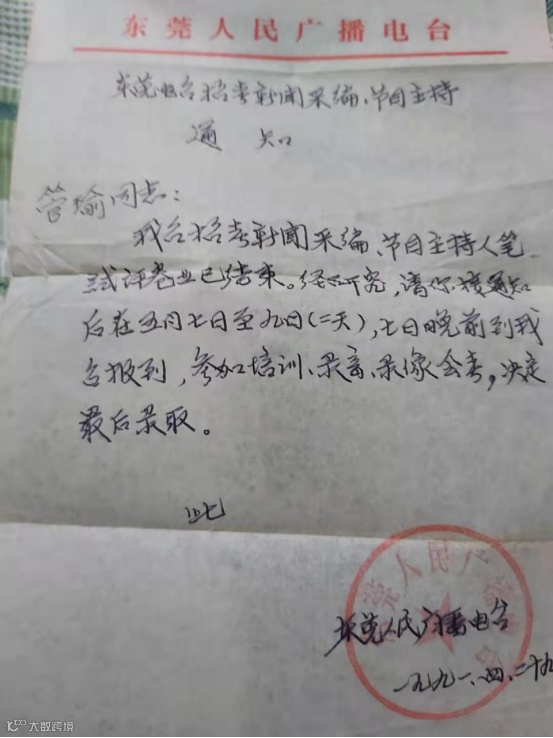 东莞人民广播电台
东莞电台招考新闻采编、节目主持
通知
管瑜同志：
我台招考新闻采编、节目主持人笔
试评卷业已结束。经研究，请你接通知
后在五月七日至九日(二天)，七日晚前到我
台报到，参加培训、录音、录像会考，决定
最后录取。
此
东莞人民广播电台
一九九一.四.二十九
大数跨境